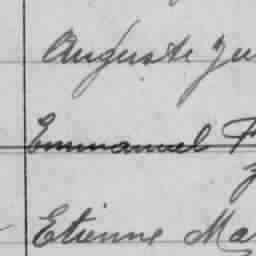 Auguste Ju
Emmanuel F
Etienne Ma